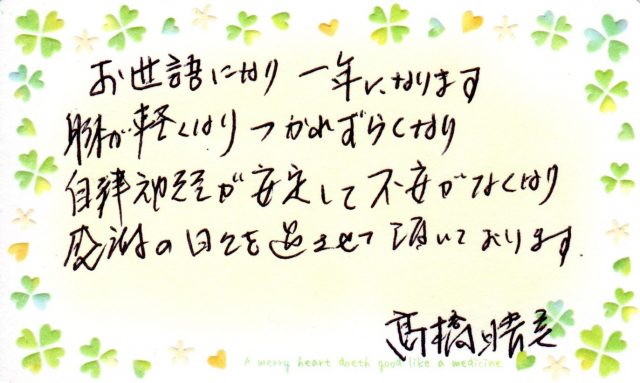 お世話になり 一年になります
身体が軽くなり つかれずらくなり
自律神経が安定して不安がなくなり
感謝の日々を過させて頂いております。
髙橋晴美
A merry heart doeth good like a medicine